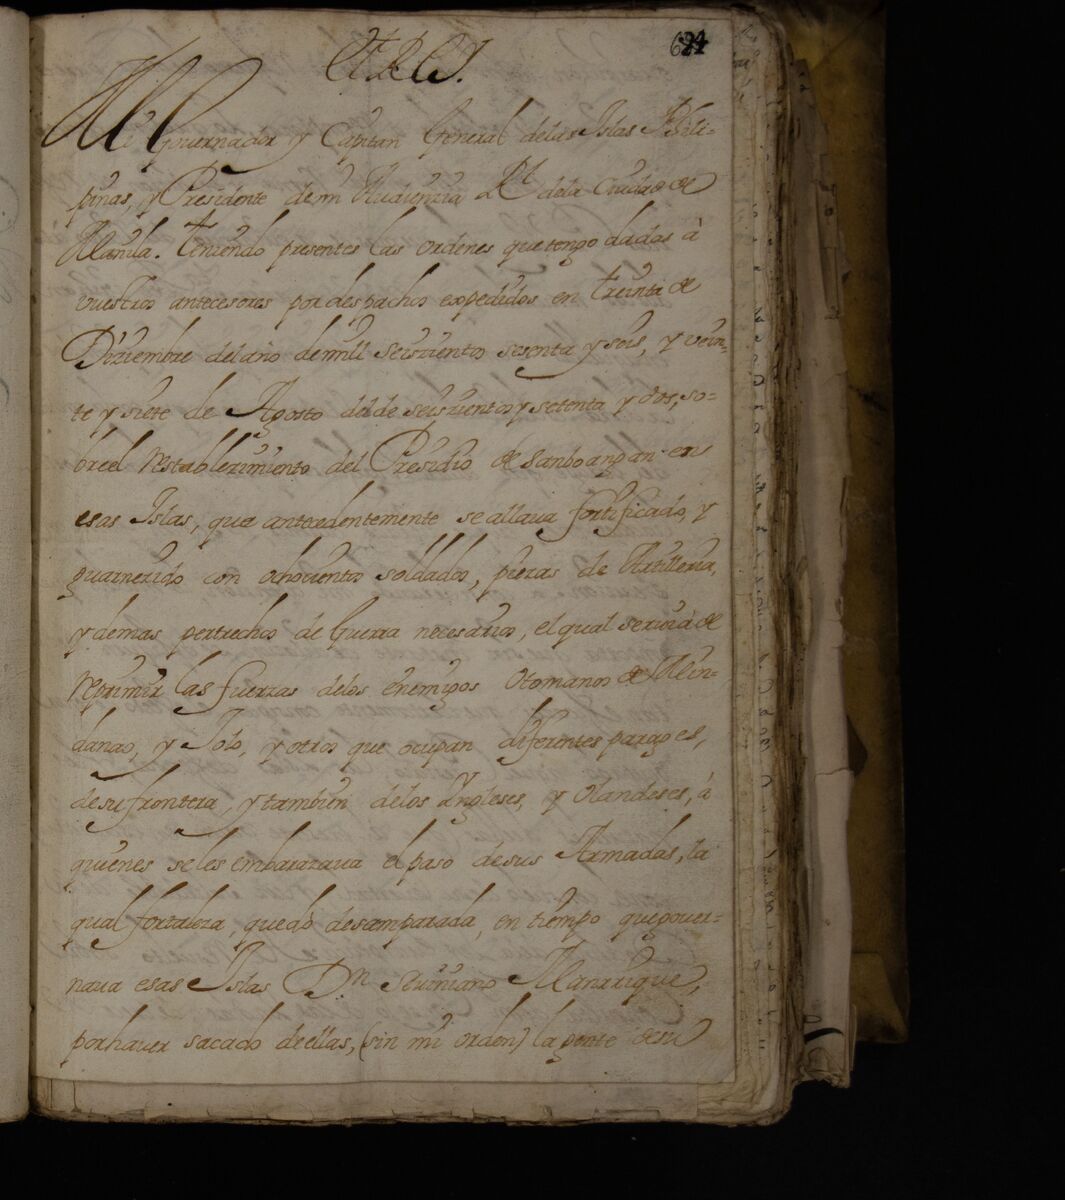 El Rey
Mi Governador y Capitan General delas Islas Phili-
pinas, y Presidente demi Audienzia Rl. dela Ciudad de
Manila. Teniendo presentes las ordenes que tengo dadas à
vuestros antecesores por despachos expedidos en treinta de
Diziembre del año demill seiscientos sesenta y seis, y vein-
te y siete de Agosto del de seiscientos y setenta y dos, so-
breel restablezimiento del Presidio de Sanboangan en
esas Islas, que antecedentemente se allaua fortificado, y
guarnezido con ochocientos soldados, piezas de Artilleria,
y demas pertrechos de Guerra necesarios, el qual seruia de
reprimir las fuerzas delos enemigos Otomanos de Min-
danao, y Jolo, y otros que ocupan diferentes parages,
desu frontera, y tambien delos Yngleses, y Olandeses, à
quienes se les embarazaua el paso desus Armadas, la
qual fortaleza, quedò desamparada, en tiempo que gouer-
naua esas Islas Dn. Seuiniano Manrrique,
por hauer sacado deellas, (sin mi orden) la gente desu